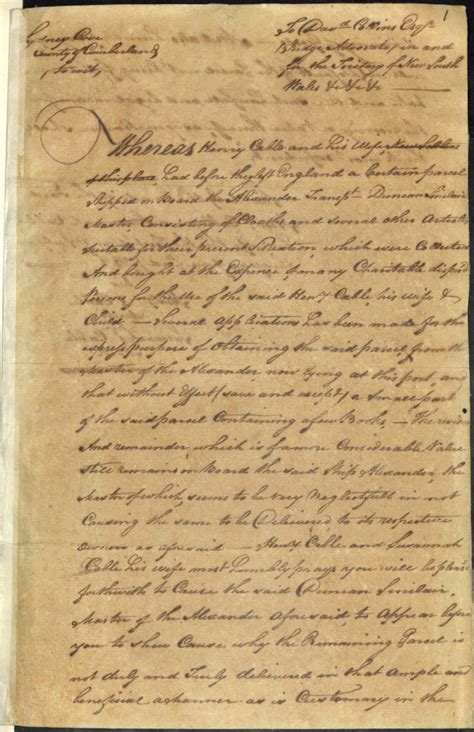 1
Sydney Cove
County of Cumberland
to wit,
To Davd. Collins Esqr.
Judge Advocate, in and
for the Territory of New South
Wales &c &c &c
Whereas Henry Cable and his Wife, New Settlers
of this place, had before they left England a Certain parcel
Shipped on Board the Alexander Transpt. Duncan Sinclair
Master, Consisting of Cloaths and several other Articles
suitable for their present Situation, which were Collected
And bought at the Expence of many Charitable disposed
Persons for the Use of the said Heny. Cable, his Wife &
Child — Several Applications has been made for the
express purpose of Obtaining the said parcel from the
Master of the Alexander now lying at this port, and
that without Effect (save and except) a small part
of the said parcel Containing a few Books, — The
And remainder, which is of a more Considerable Value
Still remains on Board the said Ship Alexander, the
Master of which, seems to be very Neglectfull in not
Causing the same to be Delivered, to its respective
owners as aforesaid — Heny. Cable and Susannah
Cable his Wife most humbly prays you will be pleas
forthwith to Cause the said Duncan Sinclair,
Master of the Alexander aforesaid, to Appear before
you to shew Cause why the Remaining Parcel is
not duly and Truly delivered in that ample and
beneficial a Manner as is Customary in the